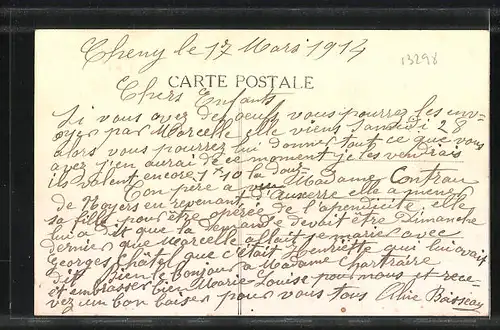 Cheny le 17 Mars 1914
13298
CARTE POSTALE
Chers Enfants
Si vous avez des oeufs vous pourrez les env-
oyer par Marcelle elle viens Samedi 28
alors vous pourrez lui donner tout ce que vous
avez j'en aurai de ce moment je les vendrais
ils valent encore 1 10 la douz
Ton père a vu Madame Contrau
de Noyers en revenant d'Auxerre elle a mener
sa fille pour être opérée de l'apendicite elle
lui a dit que la demande devait être Dimanche
dernier que Marcelle allait se marier avec
Georges Châtel que c'était Henriette qui lui avait
dit Bien le bonjour à Madame Chartraire
et embrasser bien Marie Louise pour nous et rece-
vez un bon baiser pour vous tous Aline